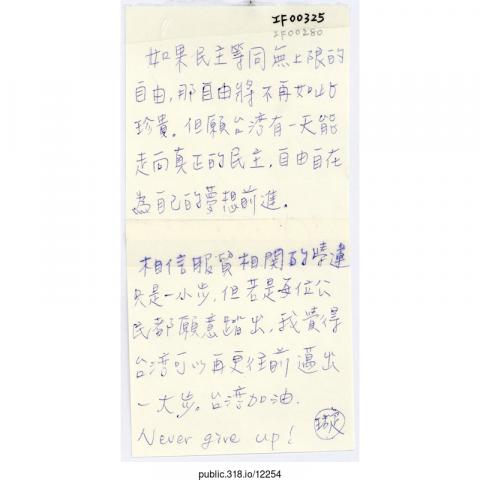 IF00325
IF00280
如果民主等同無上限的
自由，那自由將不再如此
珍貴。但願台湾有一天能
走向真正的民主，自由自在
為自己的夢想前進。
相信服貿相関的學運
只是一小步，但若是每位公
民都願意踏出，我覺得
台湾可以再更往前邁出
一大步。台湾加油.
Never give up!
public.318.io/12254